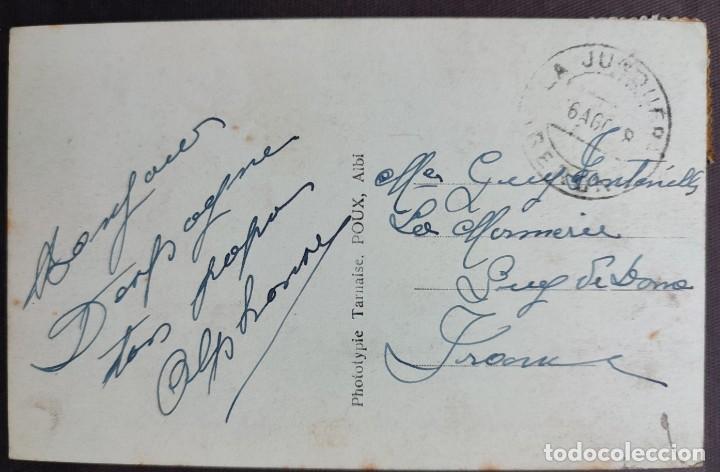 Bonjour
Despagne
ton papa
Alphonse
Phototypie Tarnaise, POUX, Albi
LA JUNQUERA
6 AGO
Guy Fontenille
La
Puy de Dome
France
todocoleccion